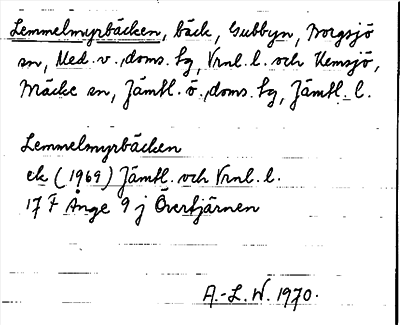 Lemmelmyrbäcken, bäck, Gubbyn, Borgsjö
sn, Med. v. doms. hg, Vrnl. l. och Hemsjö,
Bräcke sn, Jämtl. ö. doms. hg, Jämtl. l.
Lemmelmyrbäcken
ek (1969) Jämtl. och Vrnl. l.
17 F Ånge 9 j Övertjärnen
A.-L. W. 1970.